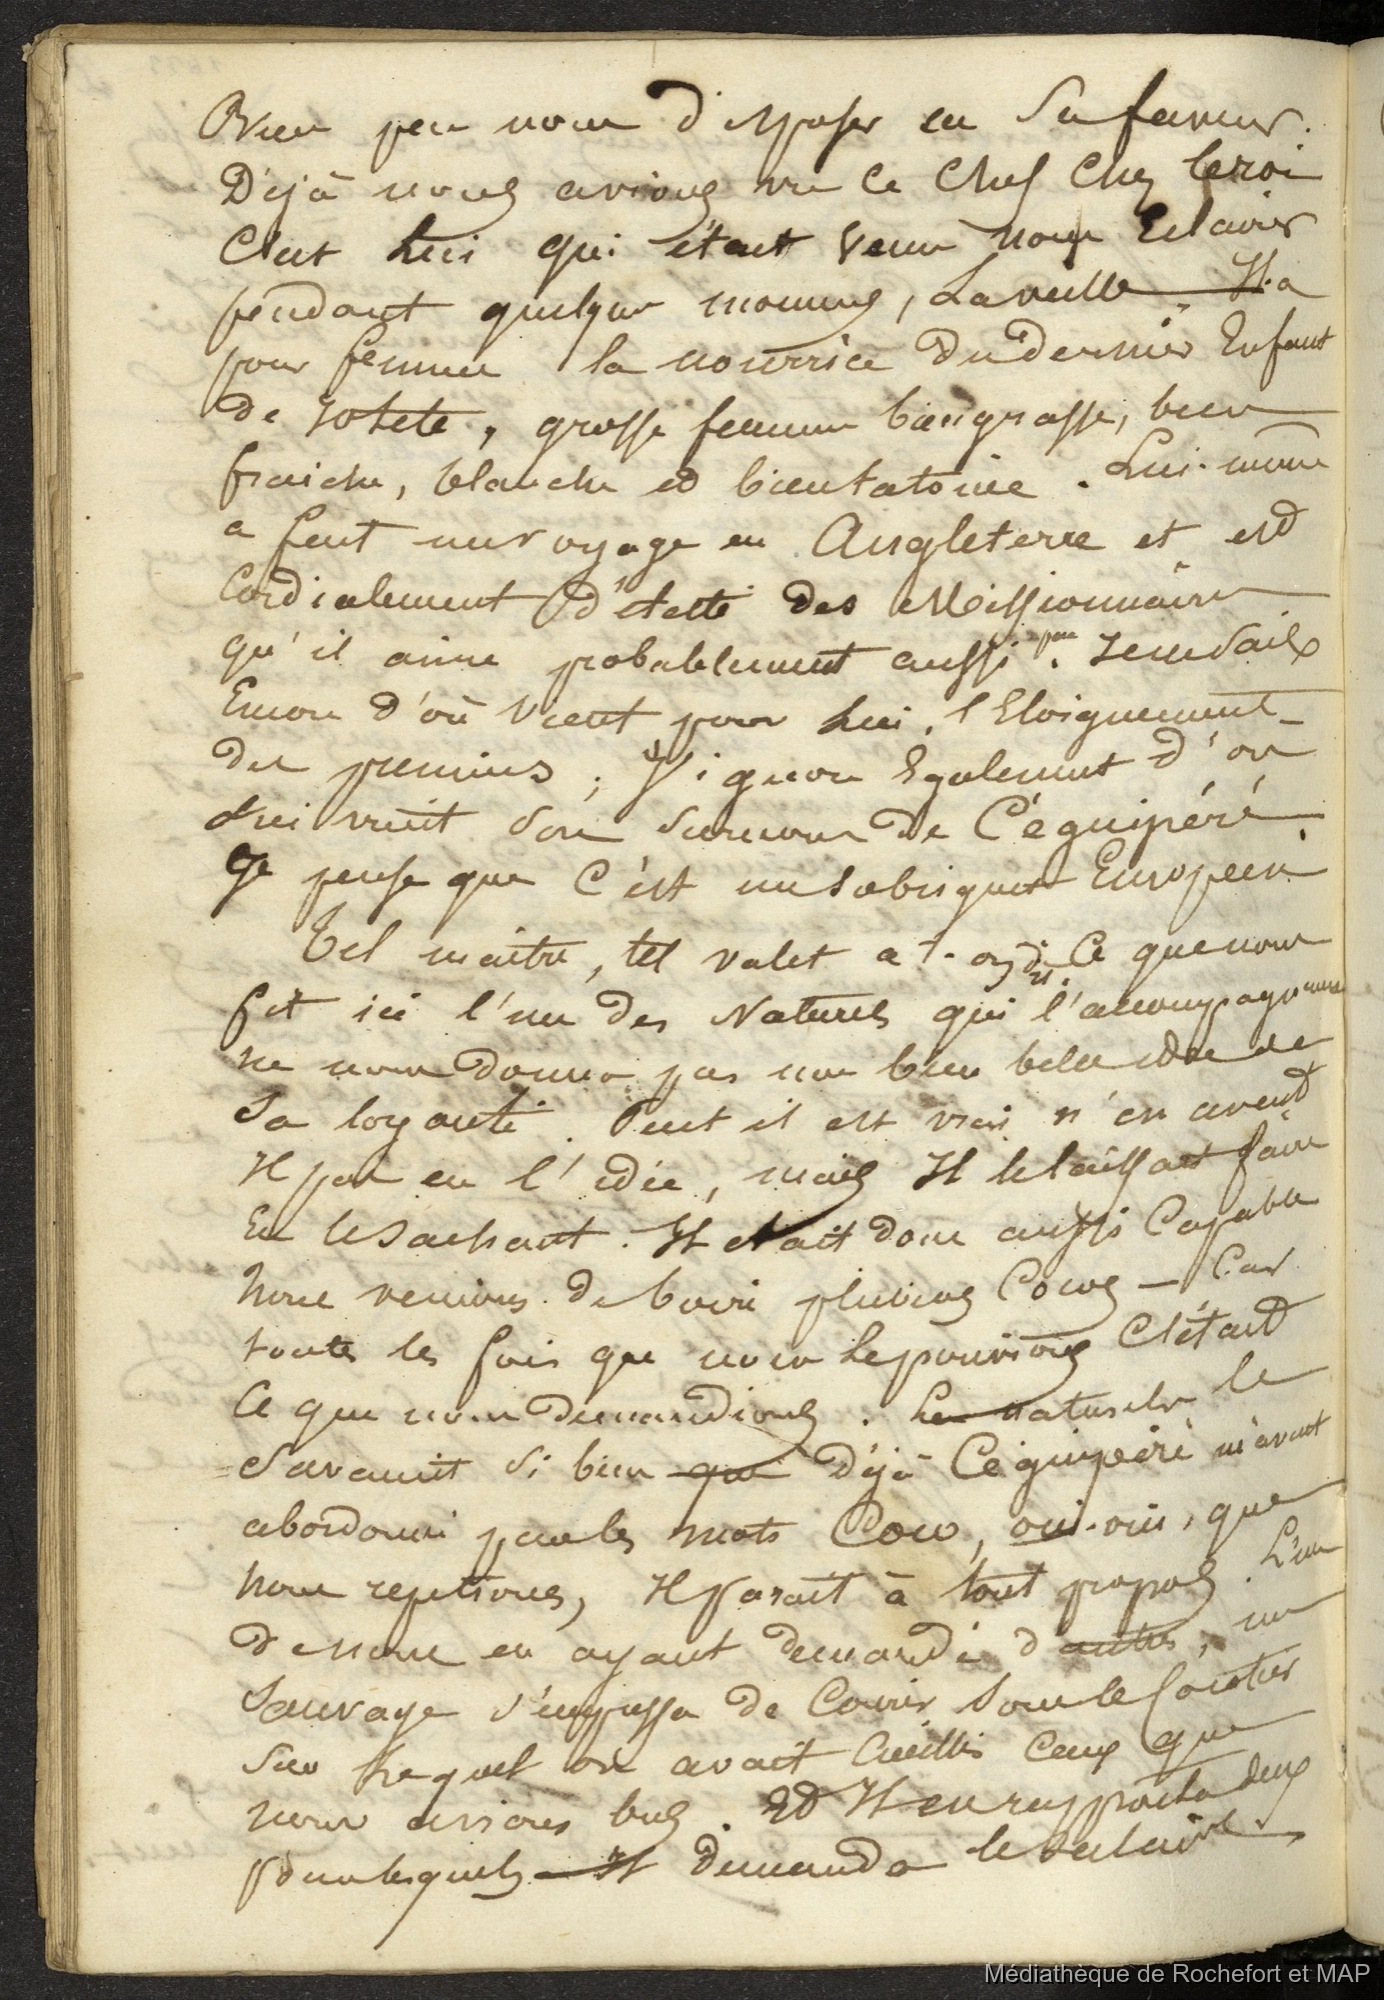 Bien peu nous disposer en sa faveur.
Déjà nous avions vu ce Chef Chez le roi
C'est lui qui était venu nous Eclairer
pendant quelques moments, La veille. Il a
pour femme la nourrice du dernier Enfant
de Totete, grosse femme bien grasse, bien
fraiche, blanche et bien tatouée. Lui-même
a fait un voyage en Angleterre et est
Cordialement détesté des Missionnaires
qu'il aime probablement aussi peu. Je ne sais
Encore d'où vient pour lui, l'Eloignement
des premiers; J'ignore Egalement d'ou
lui vient son surnom de Céguipéré.
Je pense que C'est un sobriquet Européen
Tel maitre, tel valet a t-on dit. Ce que nous
fit ici l'un des Naturels qui l'accompagnaient
ne nous donna pas une bien belle idée de
Sa loyauté. Peut il est vrai n'en avait
Il pas eu l'idée, mais Il le laissait faire
En le sachant. Il etait donc aussi Capable
Nous venions de boire plusieurs Cocos — Car
toutes les fois que nous le pouvions C'était
Ce que nous demandions. Les naturels le
Savaient si bien que Déjà Céguipéré m'avait
abordé par les mots Coco, oui-oui, que
nous repetions, Il parait à tout propos. L'un
de nous en ayant demandé d'autres, un
Sauvage s'empressa de Courir Sous le Cocotier
Sur lequel on avait Cueillis Ceux que
nous avions bus. Et Il en rapporta deux
pour lesquels Il demanda le salaire.
Médiathèque de Rochefort et MAP